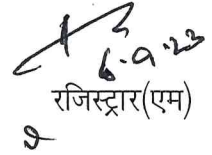 6-9-23
रजिस्ट्रार(एम)